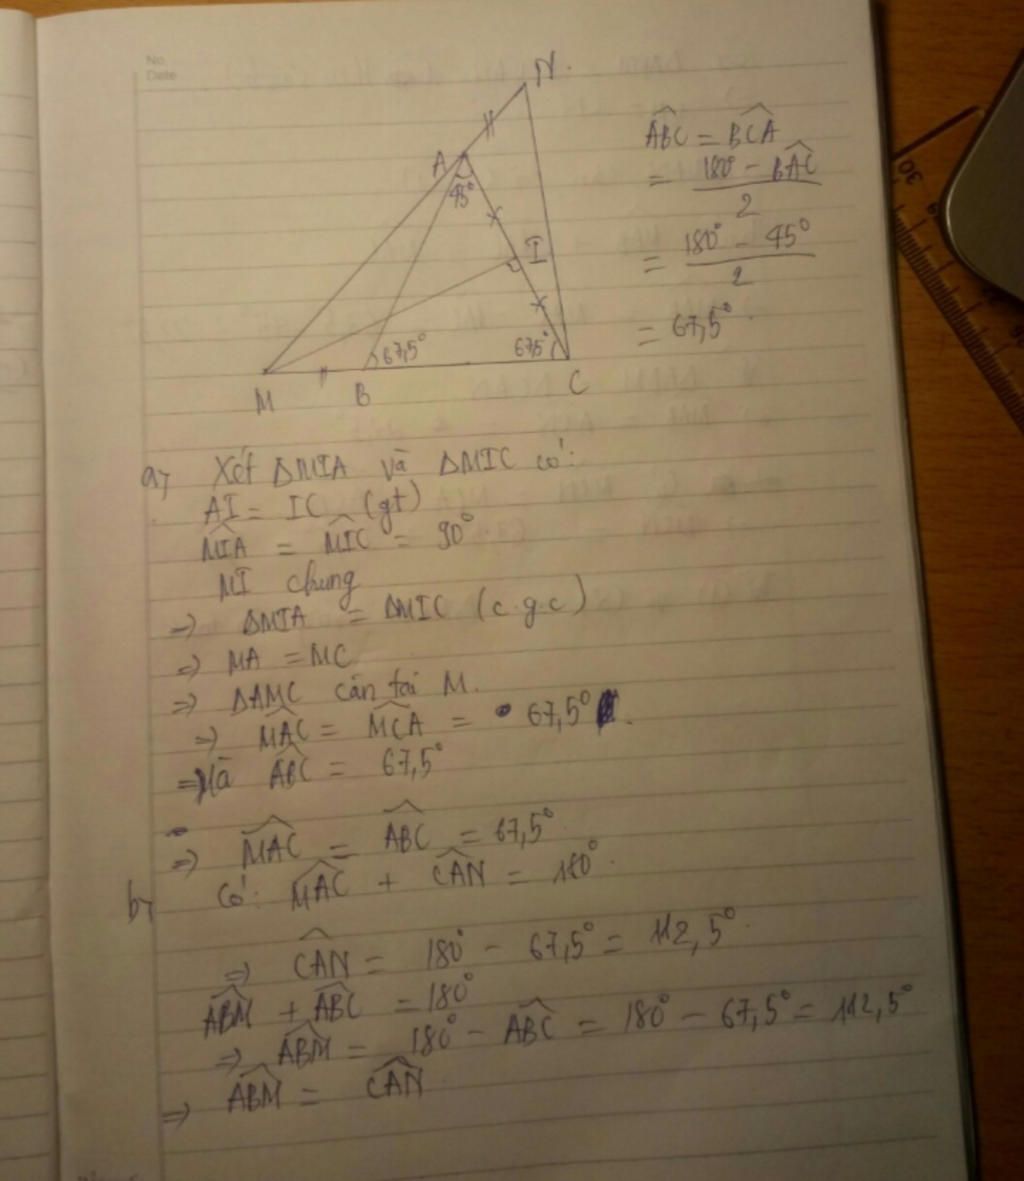 No
Date
N.
A
45°
I
67,5°
67,5°
M
B
C
ABC = BCA
= 180° - BAC
2
= 180° - 45°
2
= 67,5°.
a, Xét ΔMIA và ΔMIC có:
AI = IC (gt)
MIA = MIC = 90°
MI chung
=> ΔMIA = ΔMIC (c.g.c)
=> MA = MC
=> ΔAMC cân tại M.
=> MAC = MCA = 67,5°.
=> Mà ABC = 67,5°
=> MAC = ABC = 67,5°
b, Có: MAC + CAN = 180°.
=> CAN = 180° - 67,5° = 112,5°.
ABM + ABC = 180°
=> ABM = 180° - ABC = 180° - 67,5° = 112,5°
=> ABM = CAN
30